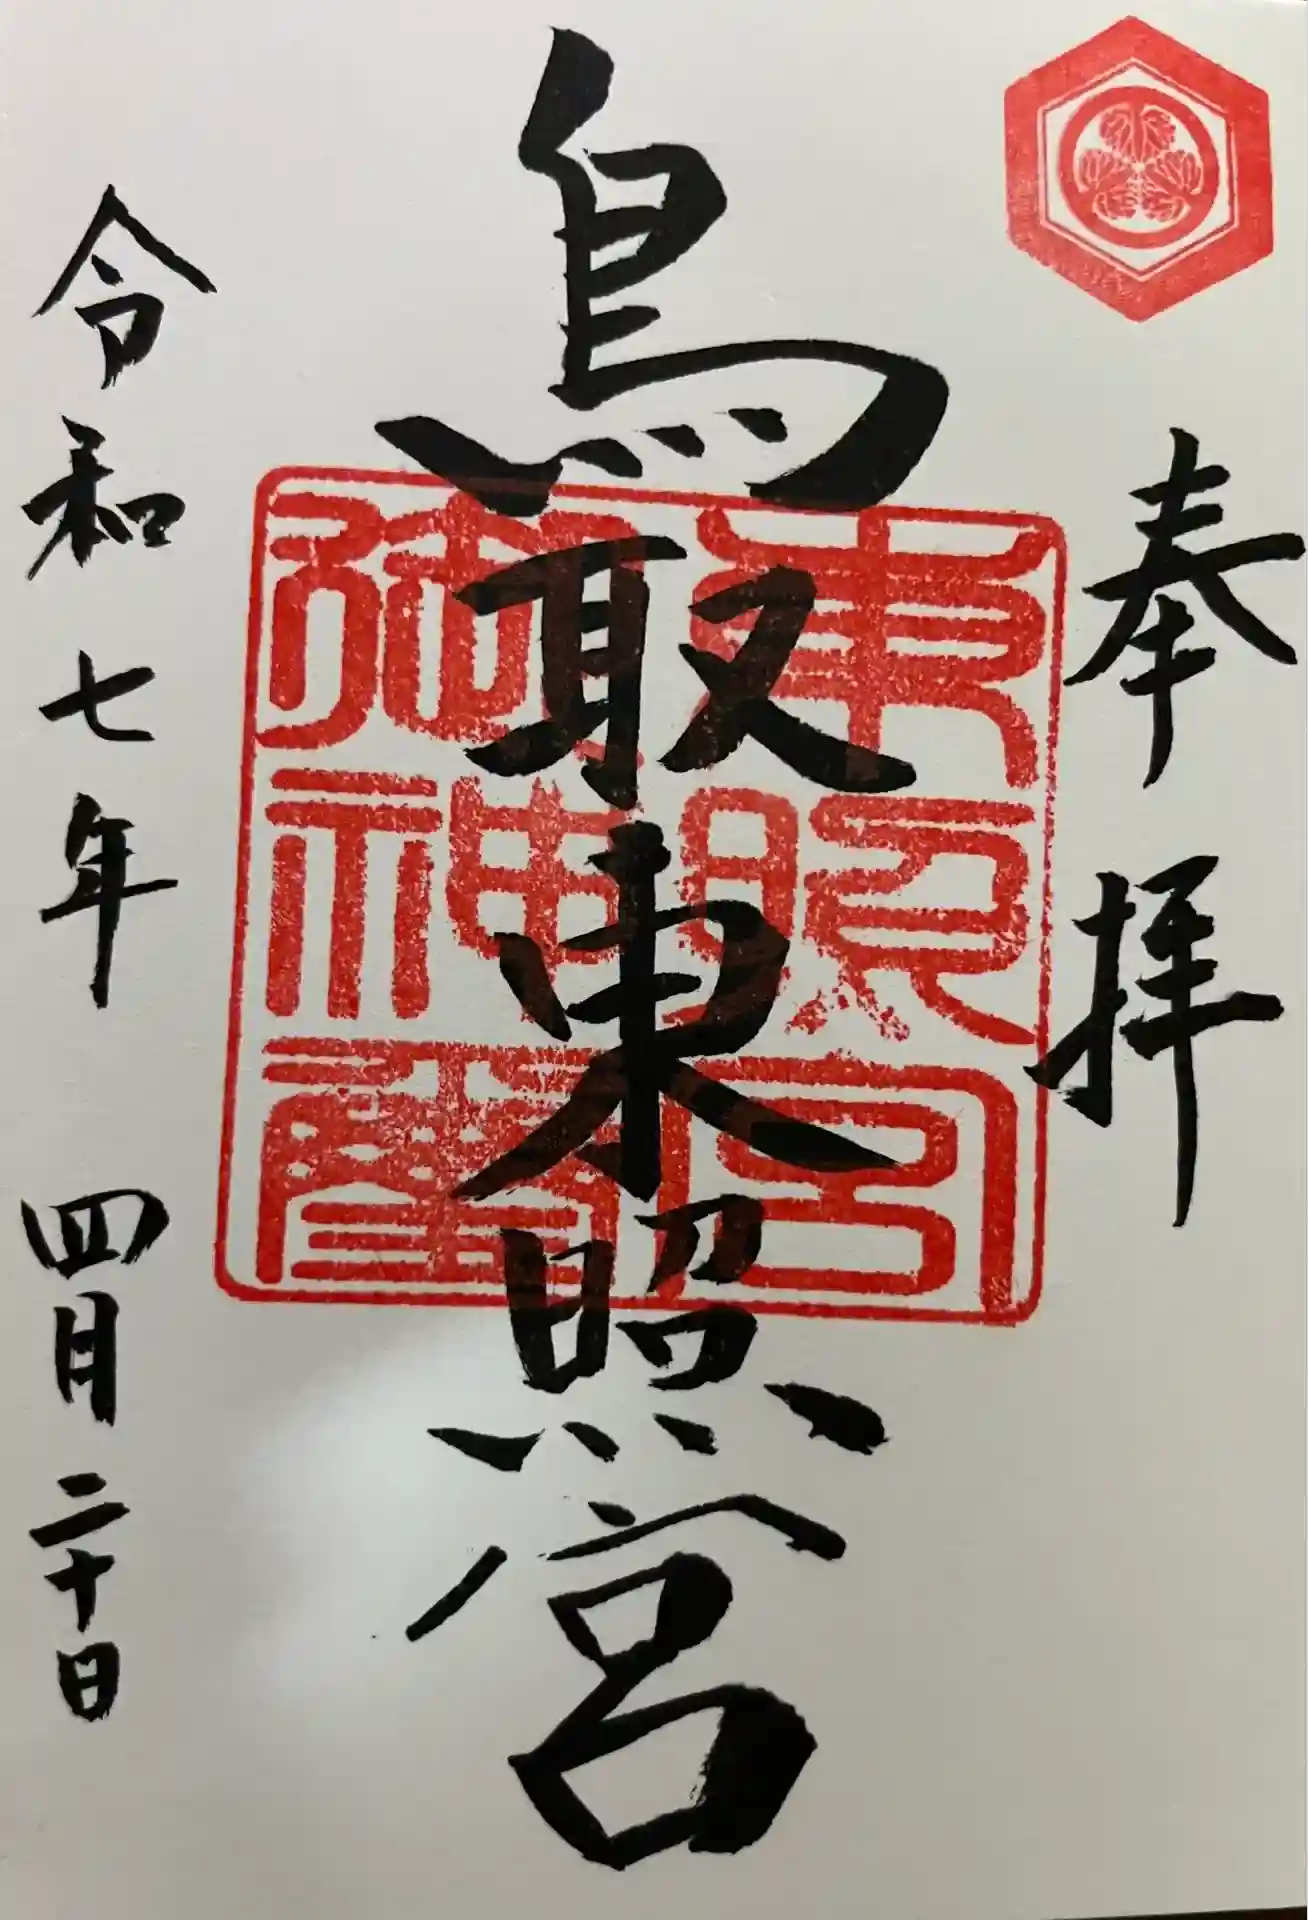 奉拝
鳥取東照宮
東照宮
御神璽
令和七年四月二十日